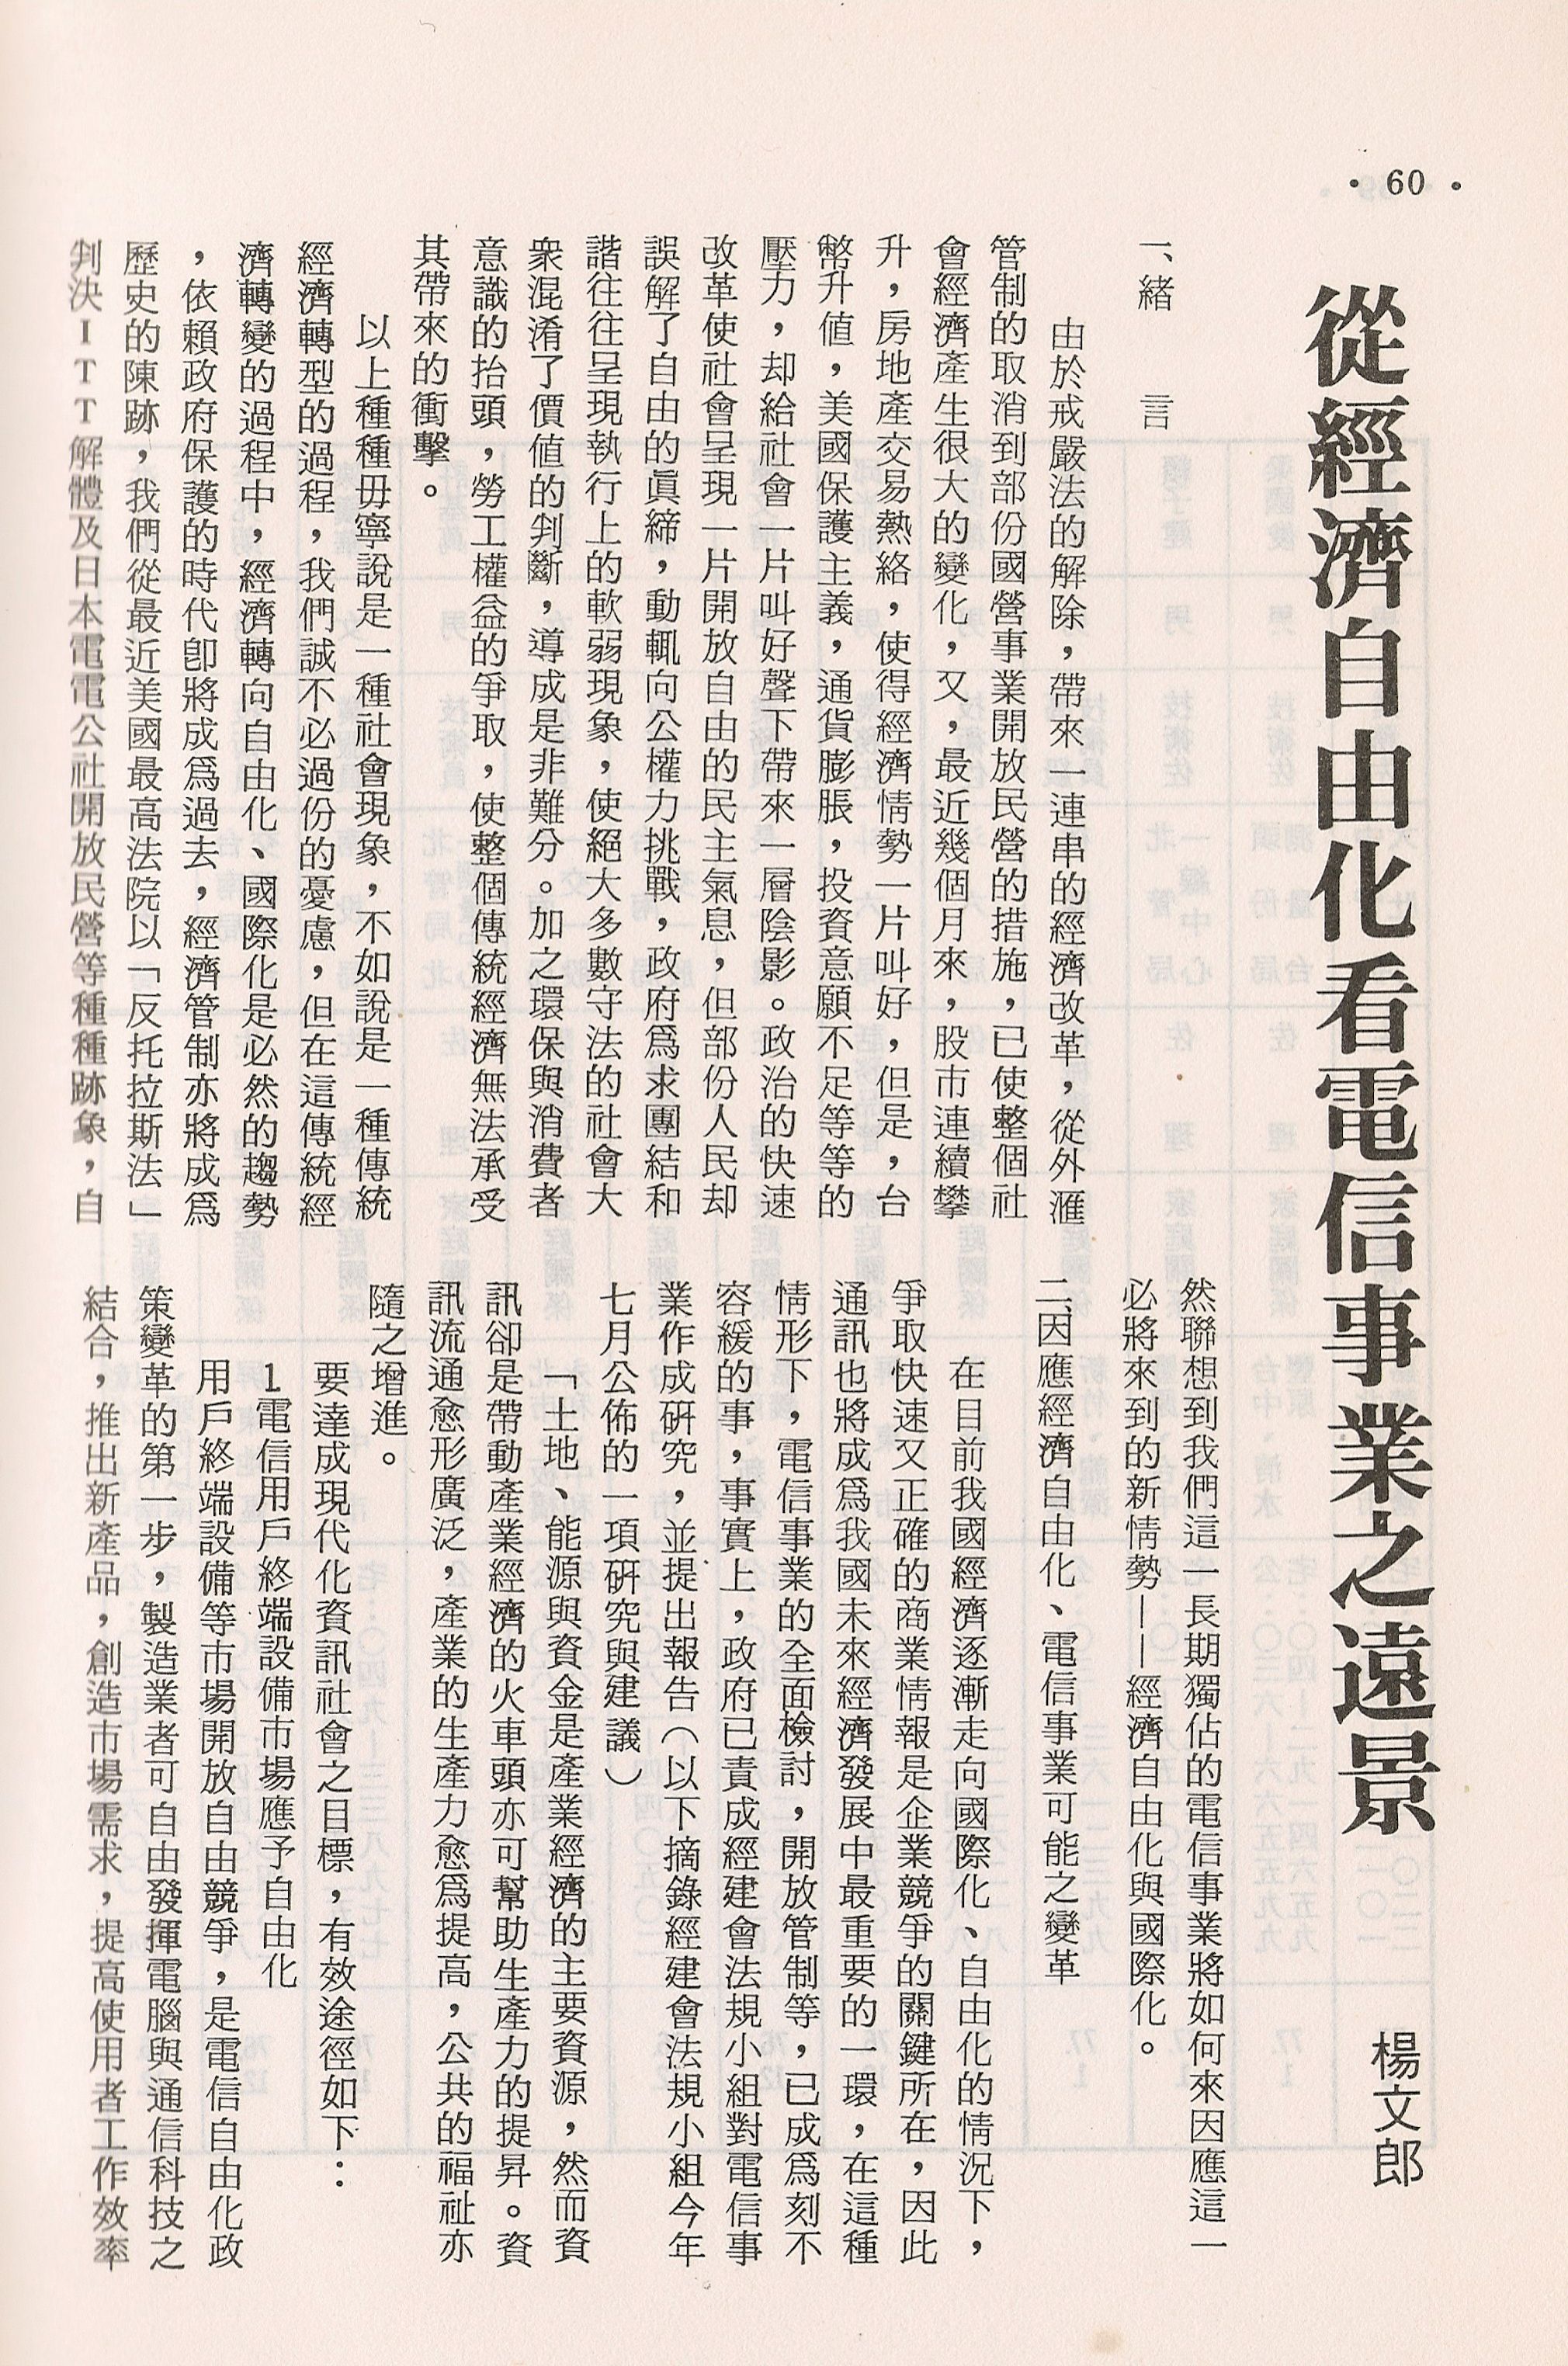 • 60 •
從經濟自由化看電信事業之遠景
楊文郎
一、緒　言
由於戒嚴法的解除，帶來一連串的經濟改革，從外滙
管制的取消到部份國營事業開放民營的措施，已使整個社
會經濟產生很大的變化，又，最近幾個月來，股市連續攀
升，房地產交易熱絡，使得經濟情勢一片叫好，但是，台
幣升值，美國保護主義，通貨膨脹，投資意願不足等等的
壓力，却給社會一片叫好聲下帶來一層陰影。政治的快速
改革使社會呈現一片開放自由的民主氣息，但部份人民却
誤解了自由的眞締，動輒向公權力挑戰，政府爲求團結和
諧往往呈現執行上的軟弱現象，使絕大多數守法的社會大
衆混淆了價值的判斷，導成是非難分。加之環保與消費者
意識的抬頭，勞工權益的爭取，使整個傳統經濟無法承受
其帶來的衝擊。
以上種種毋寧說是一種社會現象，不如說是一種傳統
經濟轉型的過程，我們誠不必過份的憂慮，但在這傳統經
濟轉變的過程中，經濟轉向自由化、國際化是必然的趨勢
，依賴政府保護的時代卽將成爲過去，經濟管制亦將成爲
歷史的陳跡，我們從最近美國最高法院以「反托拉斯法」
判決ＩＴＴ解體及日本電電公社開放民營等種種跡象，自
然聯想到我們這一長期獨佔的電信事業將如何來因應這一
必將來到的新情勢——經濟自由化與國際化。
二、因應經濟自由化、電信事業可能之變革
在目前我國經濟逐漸走向國際化、自由化的情況下，
爭取快速又正確的商業情報是企業競爭的關鍵所在，因此
通訊也將成爲我國未來經濟發展中最重要的一環，在這種
情形下，電信事業的全面檢討，開放管制等，已成爲刻不
容緩的事，事實上，政府已責成經建會法規小組對電信事
業作成研究，並提出報告（以下摘錄經建會法規小組今年
七月公佈的一項研究與建議）
「土地、能源與資金是產業經濟的主要資源，然而資
訊卻是帶動產業經濟的火車頭亦可幫助生產力的提昇。資
訊流通愈形廣泛，產業的生產力愈爲提高，公共的福祉亦
隨之增進。
要達成現代化資訊社會之目標，有效途徑如下：
1電信用戶終端設備市場應予自由化
用戶終端設備等市場開放自由競爭，是電信自由化政
策變革的第一步，製造業者可自由發揮電腦與通信科技之
結合，推出新產品，創造市場需求，提高使用者工作效率